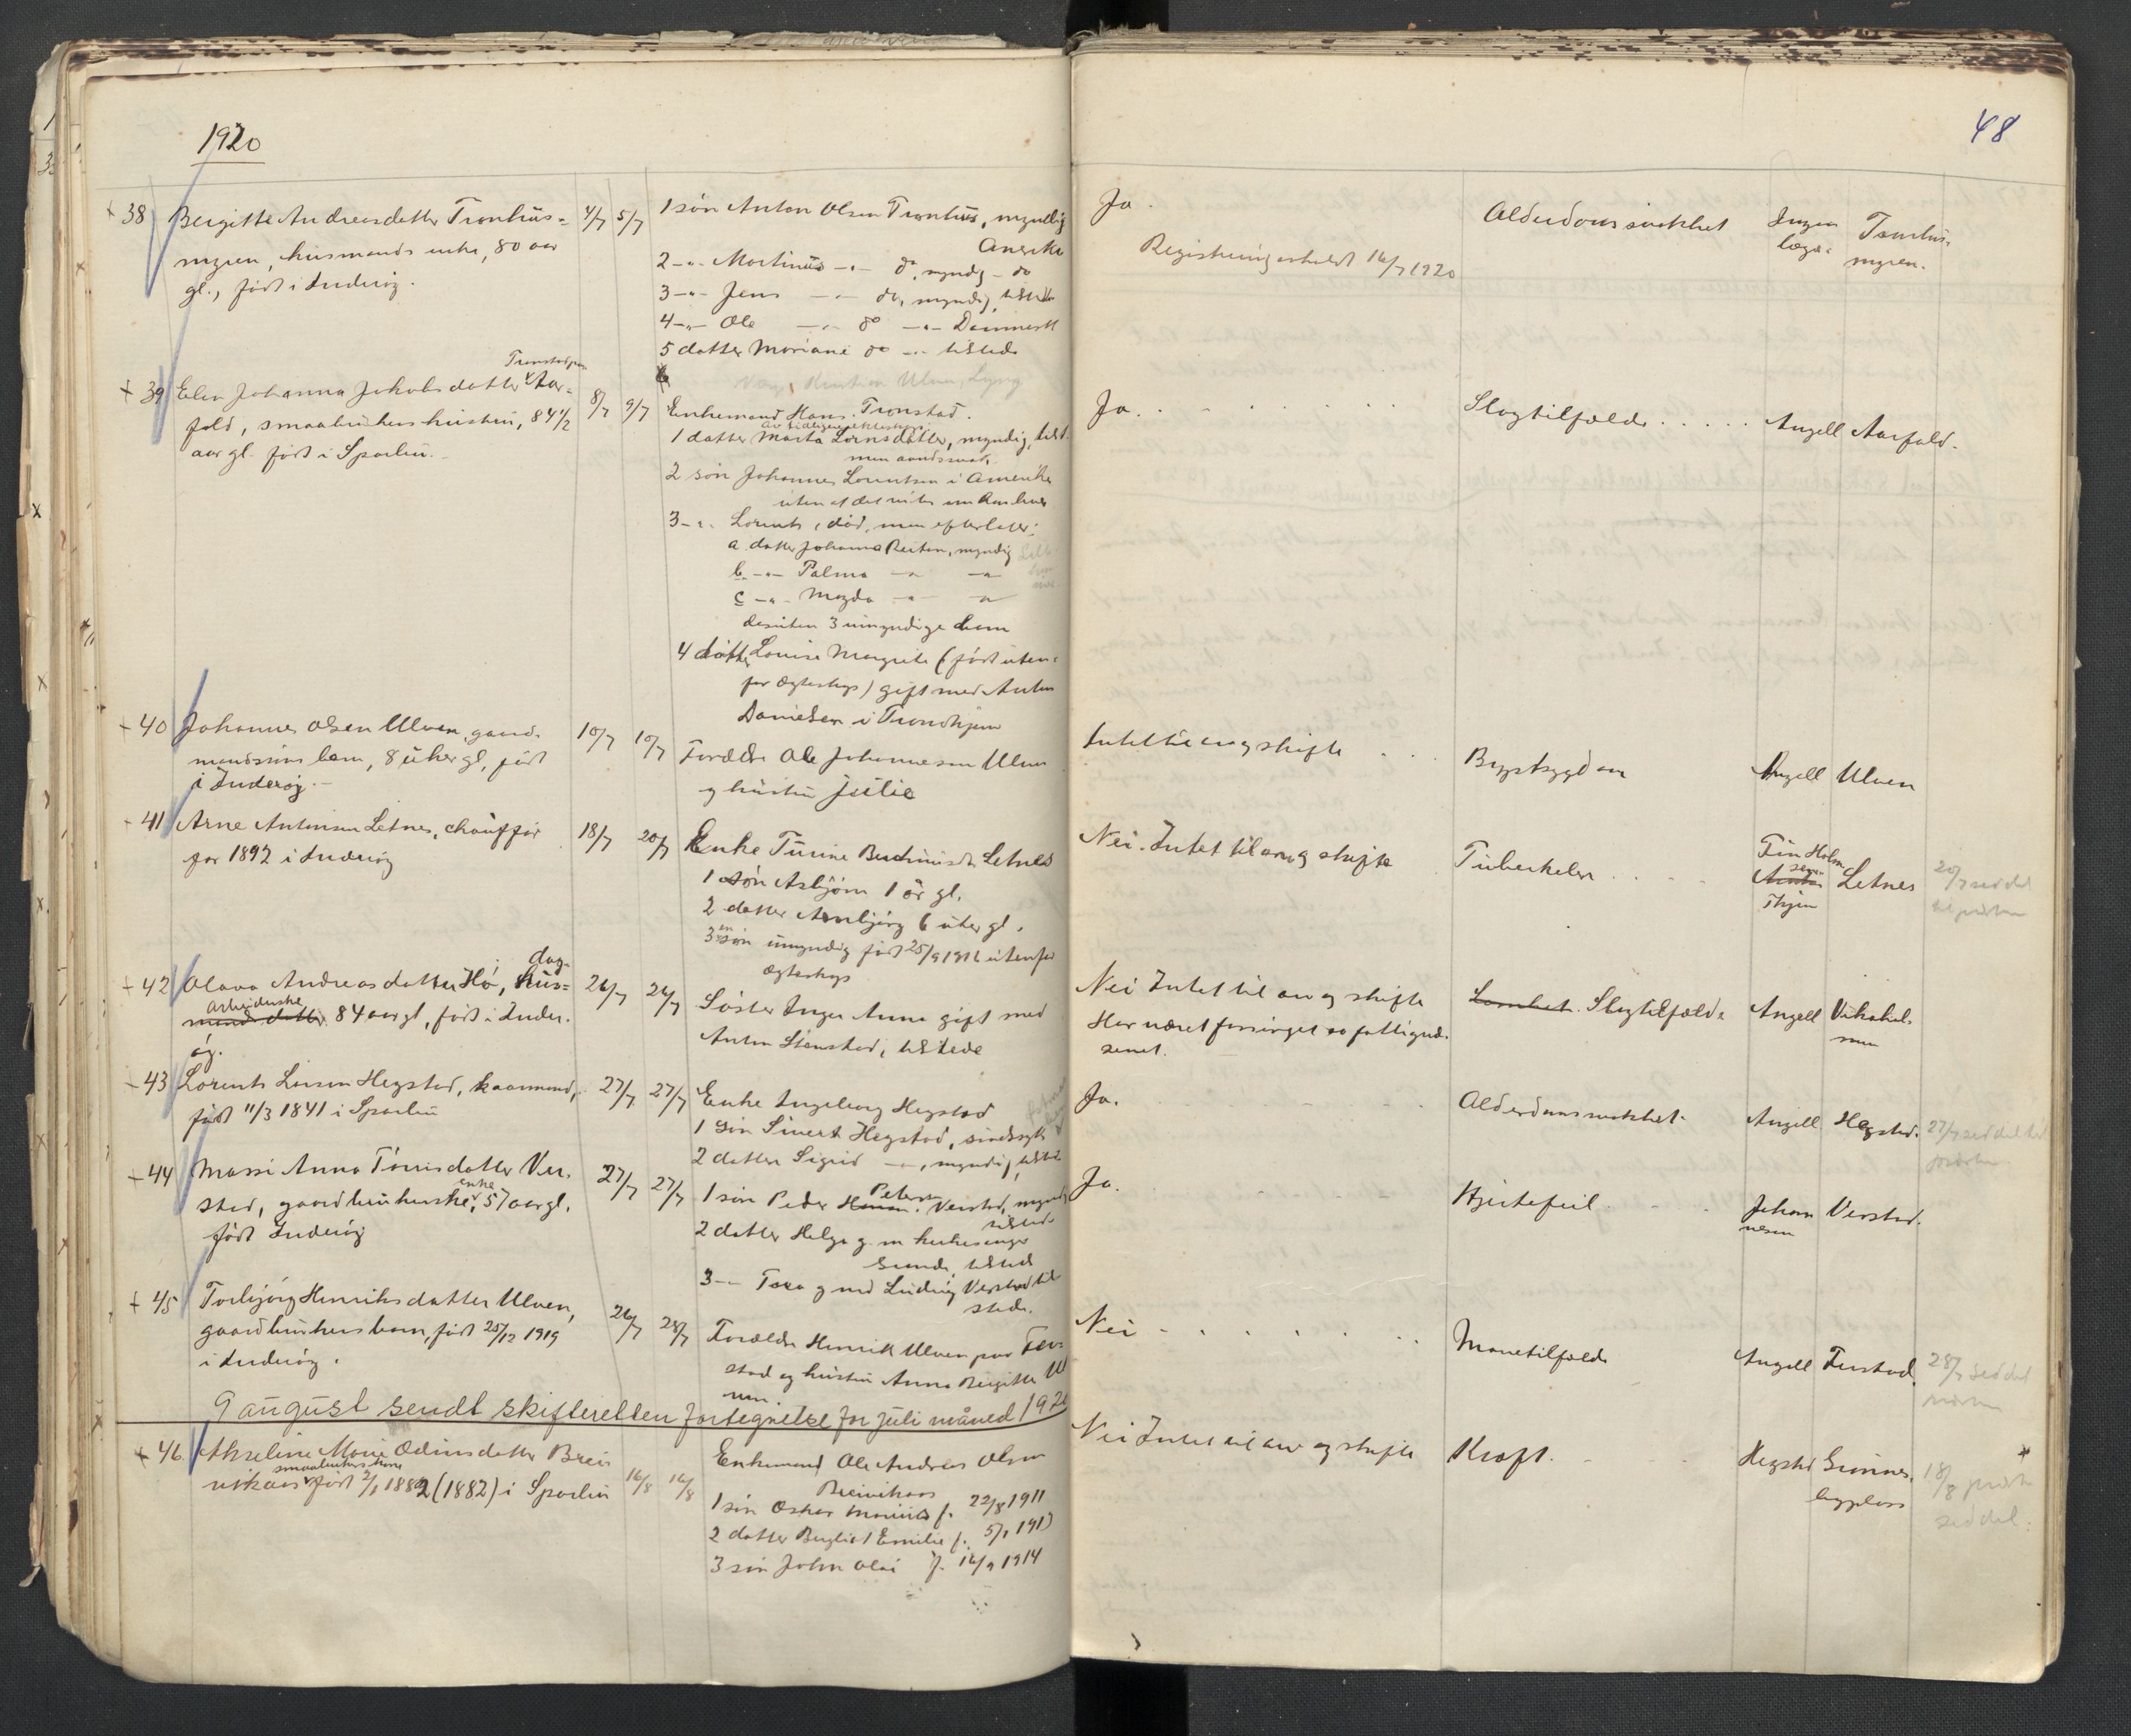 1920
48
38 Bergitte Andreasdatter Tronhus=
myren, husmands enke, 80 aar
gl., født i Inderøy.
4/7 5/7
1 søn Anton Olsen Tronhus, myndig
Amerika
2 -"- Martinus -"- do, myndg - do
3 -"- Jens -"- do, myndig, tilstede
4 -"- Ole -"- do -"- Danmark
5 datter Mariane do -"- tilstede
Ja.
Registrering avholdt 16/7 1920
Alderdomssvakhet
Ingen
læge.
Tronhus-
myren.
39 Elen Johanna Jakobsdatter Aar=
fald, smaabrukers hustru, 84 1/2
aar gl. født i Sparbu.
8/7 9/7
Enkemand Hans Tronstad.
av tidligere ekteskap:
1 datter Marta Lornsdatter, myndig, tilst.
men aandssvak.
2 søn Johannes Lorentsen i Amerika
uten at det vites om han lever
3 -"- Lorents, død, men efterlater:
a datter Johanna Reitan, myndig
b -"- Palma -"- -"-
c -"- Magda -"- -"-
desuten 3 umyndige barn
4 datter Louise Margrete (født uten-
for ægteskap) gift med Anton
Danielsen i Trondhjem
Ja.
Slagtilfælde
Angell Aarfald.
40 Johannes Olsen Ulven, gaard-
mandssøns barn, 8 uker gl, født
i Inderøy.
10/7 10/7
Forældre Ole Johannesen Ulven
og hustru Julie
Intet til arv og skifte
Brystsygdom
Angell Ulven
41 Arne Antonsen Letnes, chauffør
før 1892 i Inderøy
18/7 20/7
Enke Turine Letnes
1 søn Asbjørn 1 år gl.
2 datter Arnbjørg 6 uker gl.
3 en søn umyndig født 25/9 1916 utenfor
ægteskap
Nei. Intet til arv og skifte
Tuberkulose
Fin Holm
sen
Thjem
Letnes
20/7 seddel
til presten
42 Olava Andreasdatter Hø, dag-
hus=
arbeiderske
mands datter 84 aar gl, født i Inder-
øy.
26/7 26/7
Søster Inger Anna gift med
Anton Stenstad, tilstede
Nei Intet til arv og skifte
Har været forsørget av fattigvæ-
senet.
Slagtilfælde
Angell Vikahol-
men
43 Lorents Larsen Hegstad, kaarmand,
født 11/3 1841 i Sparbu
27/7 27/7
Enke Ingeborg Hegstad
1 søn Sivert Hegstad, sindssyk
2 datter Sigrid -"-, myndig, tilstede
Ja.
Alderdomssvakhet.
Angell Hegstad.
27/7 seddel til
presten.
44 Massi Anna Tørrisdatter Ver-
stad, gaardbrukerske, enke 57 aar gl.
født Inderøy
27/7 27/7
1 søn Peder Petersen Verstad, myndig
tilstede
2 datter Helga g. m. kirkesanger
Sunde, tilsted
3 -"- Tora g med Ludvig Verstad til
stede.
Ja.
Hjertefeil
Johan
nesen
Verstad.
45 Torbjørg Henriksdatter Ulven,
gaardbrukers barn, født 25/12 1919
i Inderøy.
26/7 28/7
Forældre Henrik Ulven paa Fer-
stad og hustru Anna Bergitte Ul
ven.
Nei
Mavetilfælde
Angell Ferstad.
28/7 seddel
presten
9 august sendt skifteretten fortegnelse for juli måned 1920
46. Akseline Marie Odinsdatter Brei
vikaas smaabrukers kone født 2/1 1882 (1882) i Sparbu
16/8 16/8
Enkemand Ole Andreas Olsen
Breivikaas
1 søn Oskar Marius f. 22/8 1911
2 datter Bergliot Emilie f. 5/1 1913
3 søn John Olai f. 16/9 1914
Nei Intet til arv og skifte
Kræft.
Hegstad Sunnes,
bygplass
18/8 prest
seddel.